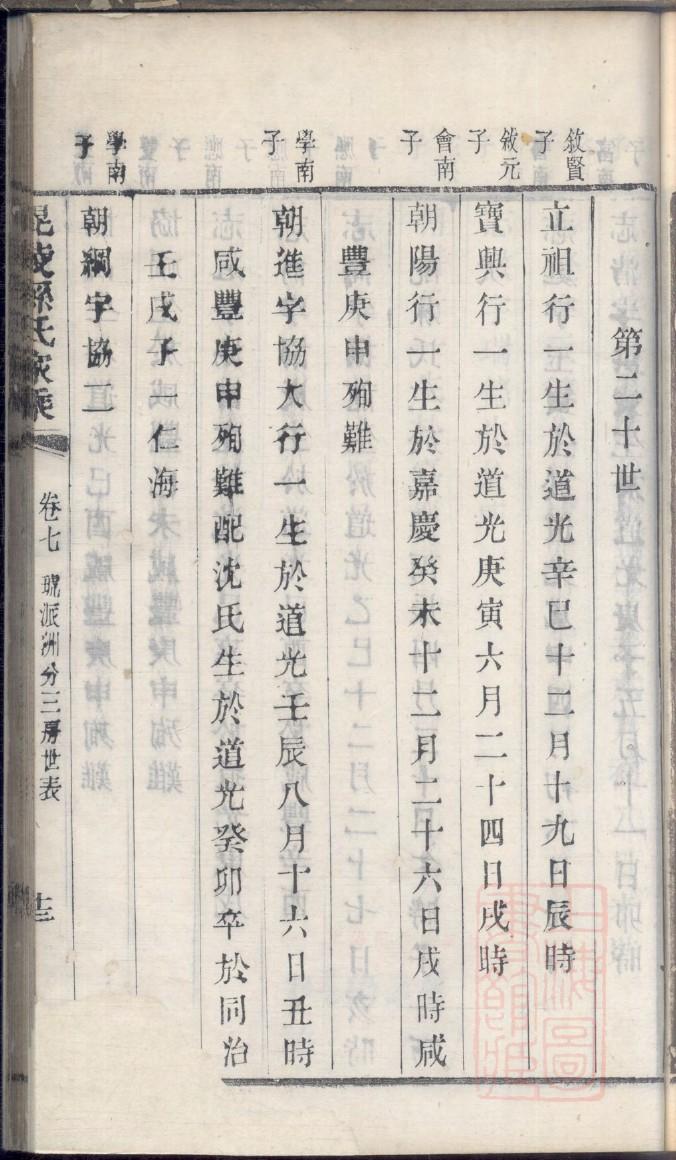 第二十世
敘賢子
立祖行一生於道光辛巳十二月十九日辰時
敘元子
寶興行一生於道光庚寅六月二十四日戌時
會南子
朝陽行一生於嘉慶癸未十二月二十六日戌時咸
豐庚申殉難
學南子
朝進字協大行一生於道光壬辰八月十六日丑時
咸豐庚申殉難配沈氏生於道光癸卯卒於同治
壬戌子一仁海
學南子
朝綱字協二
毘陵孫氏家乘
卷七
琥派洲分三房世表
十二